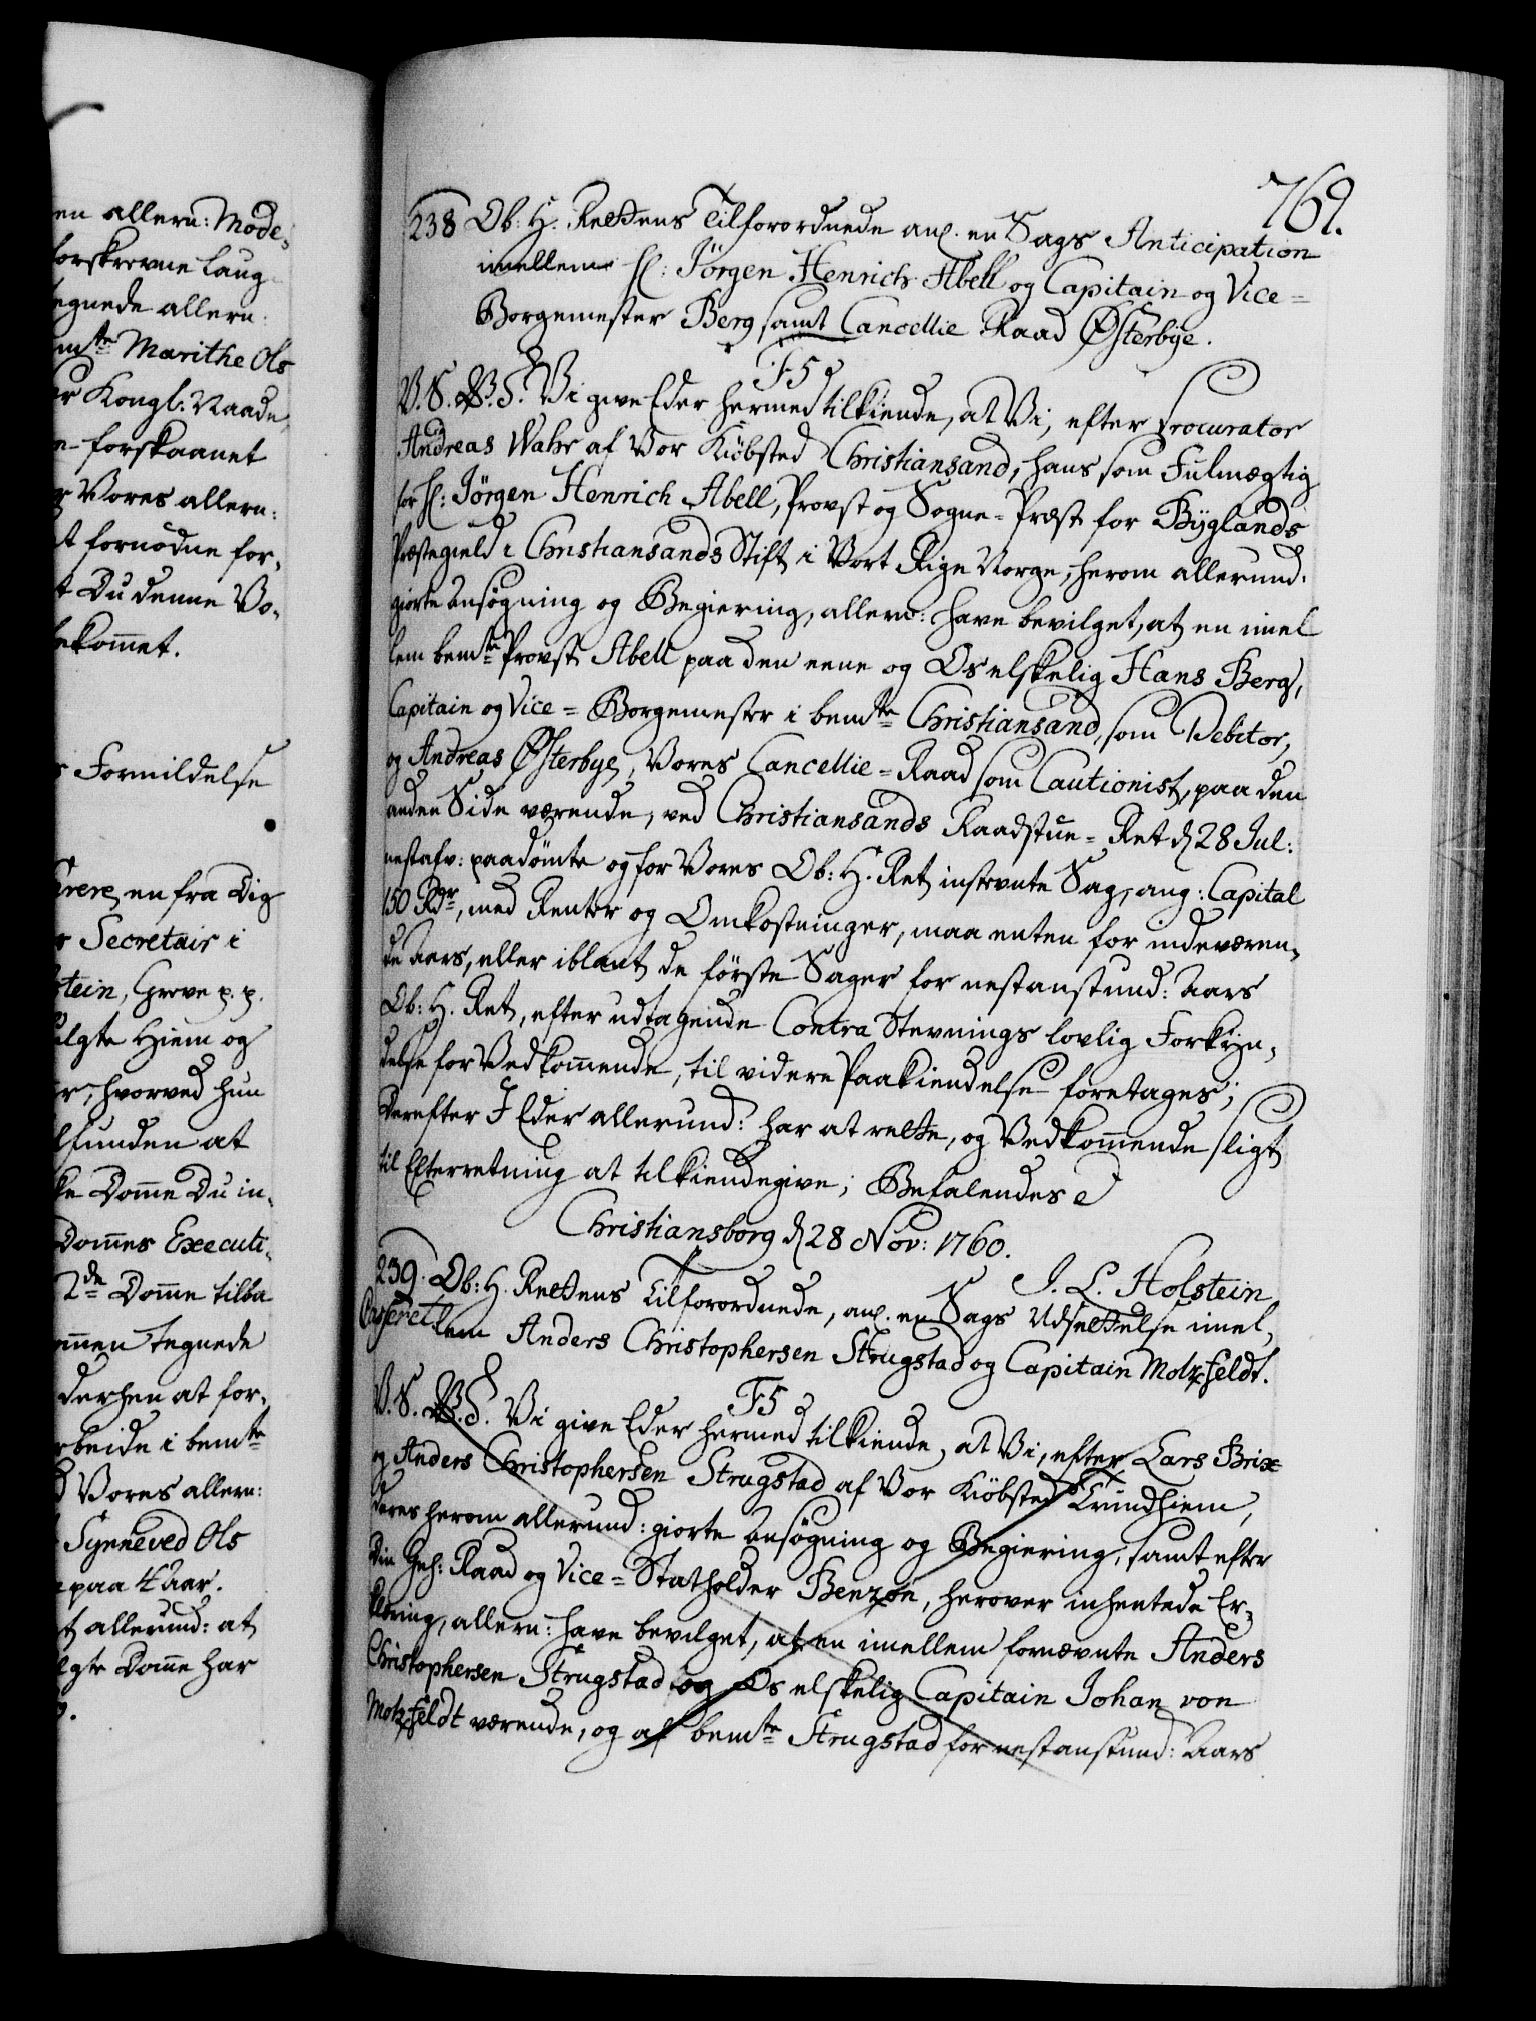 en allern: Mode-
forskrevne laug
tegnede allern:
mte Marithe Ols
r Kongl: Naade,
forskaanet
Vores allern:
t fornødne for-
t Du denne Vo-
bekommet.
s Formildelse
rere, en fra Dig
Secretair i
stein, Greve p. p.
lgte Hiem og
r, hvorved hun
lfunden at
ke Domme Du in-
Dommes Executi-
2de Domme tilba
mmen tegnede
derhen at for-
rbeide i bemte
Vores allern:
Synneved Ols
paa 4 Aar.
t allerund: at
lgte Domme har
769.
238 Ob: H. Rettens Tilforordnede anl. en Sags Anticipation
imellem Hr: Jörgen Henrich Abell og Capitain og Vice=
Borgemester Berg samt Cancellie Raad Østerbye.
F5
V. S. W. G. Vi give Eder hermed tilkiende, at Vi, efter Procurator
Andreas Wahr af Vor Kiöbsted Christiansand, hans som Fulmægtig
for Hr: Jörgen Henrich Abell, Provst og Sogne-Præst for Byglands
Præstegield i Christiansands Stift i Vort Rige Norge, herom allerund:
giorte Ansøgning og Begiering, allern: have bevilget, at en imel
lem bemte Provst Abell paa den eene og Os elskelig Hans Berg,
Capitain og Vice=Borgemester i bemte Christiansand, som Debitor,
og Andreas Østerbye, Vores Cancellie=Raad som Cautionist, paa den
anden Side værende, ved Christiansands Raadstue=Ret d 28 Jul:
nestafv: paadömte og for Vores Ob: H. Ret instevnte Sag, ang: Capital
150 Rdr, med Renter og Omkostninger, maa enten for indeværen-
de Aars, eller iblant de förste Sager for nestanstund: Aars
Ob: H. Ret, efter udtagende Contra Stevnings lovlig Forkyn-
delse for Vedkommende, til videre Paakiendelse foretages;
Derefter I Eder allerund: har at rette, og Vedkommende sligt
til Efterretning at tilkiendegive; Befalendes
Christiansborg d 28 Nov: 1760.
J. L. Holstein
239. Ob: H. Rettens Tilforordnede, anl. en Sags Udsettelse imel-
lem Anders Christophersen Strugstad og Capitain Motzfeldt.
F5
V. S. W. G. Vi give Eder hermed tilkiende, at Vi, efter Lars Brix
og Anders Christophersen Strugstad af Vor Kiöbsted Trundhiem,
deres herom allerund: giorte Ansøgning og Begiering, samt efter
Din Geh: Raad og Vice=Statholder Benzon, herover inhentede Er-
klæring, allern: have bevilget, at en imellem fornævnte Anders
Christophersen Strugstad og Os elskelig Capitain Johan von
Motzfeldt værende, og af bemte Strugstad for nestanstund: Aars